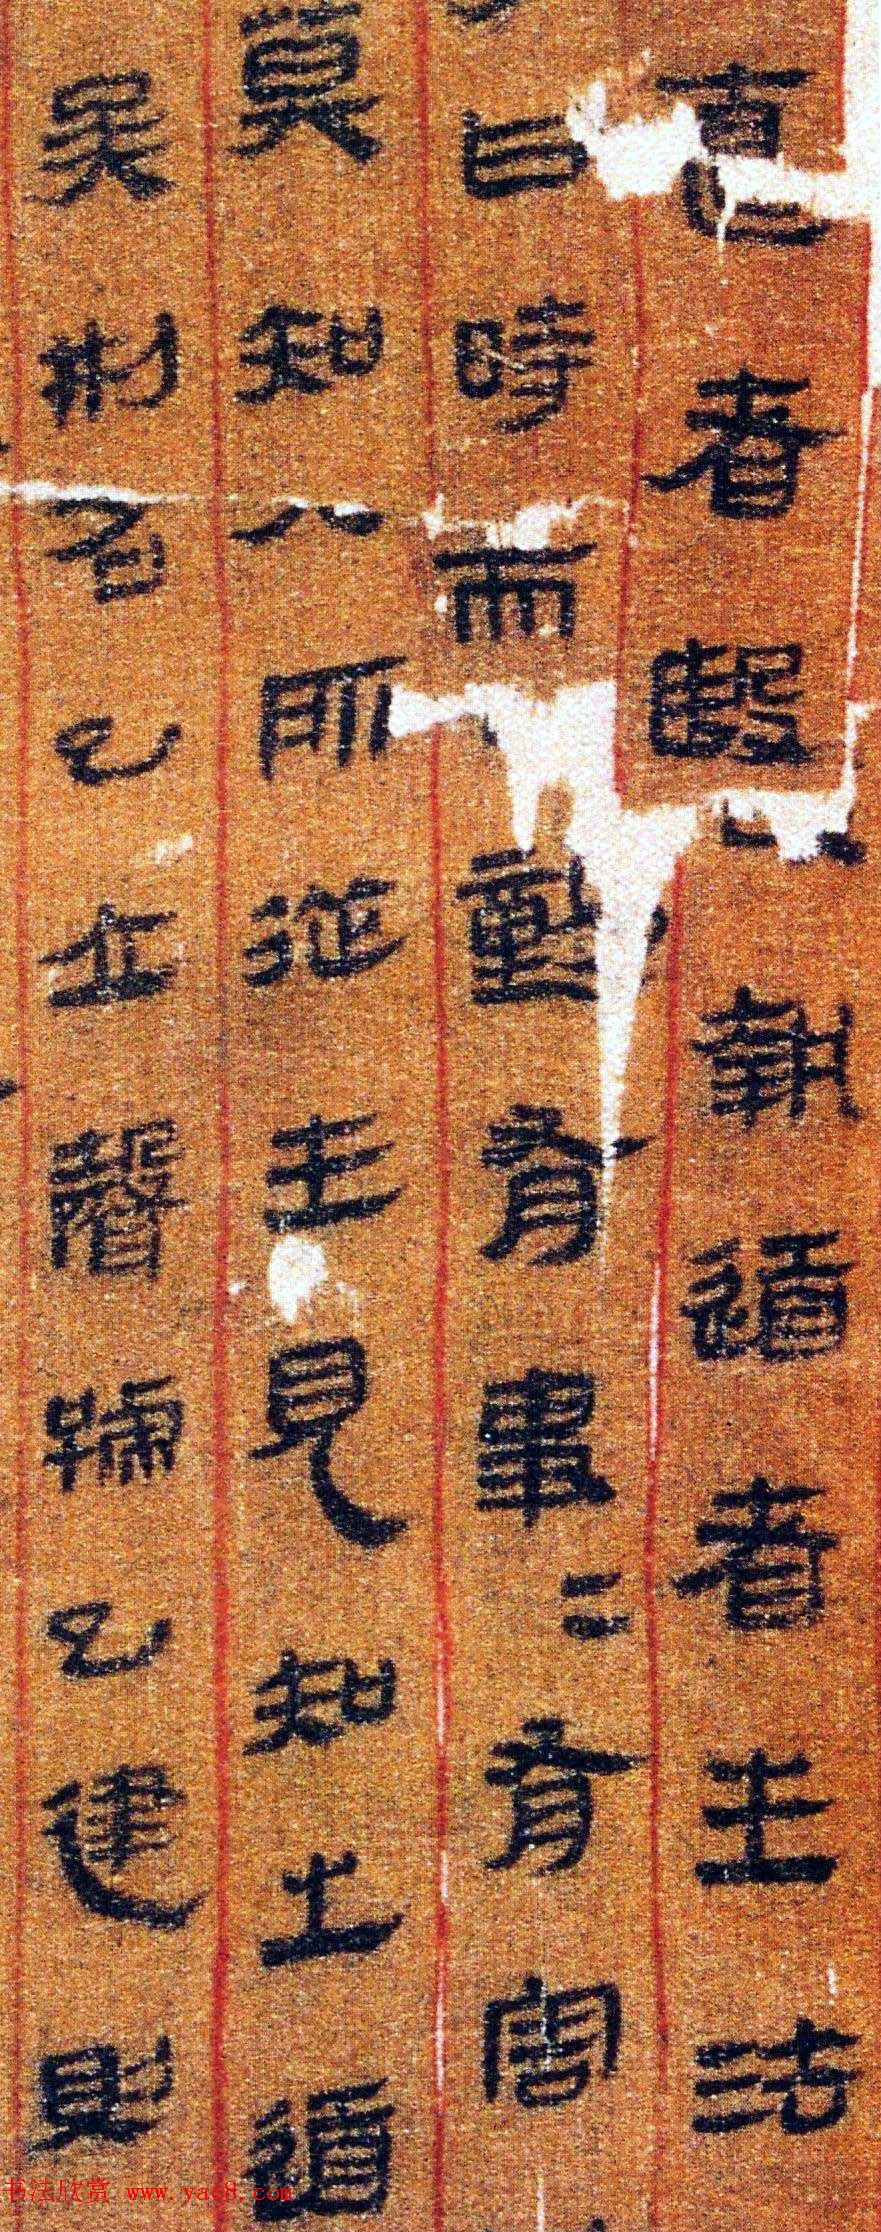 直者殹執道者生法
曰時而動有事=有害
莫知亓所從生見知之道
矣刑名已立聲號已建則
书法欣赏 www.yac8.com